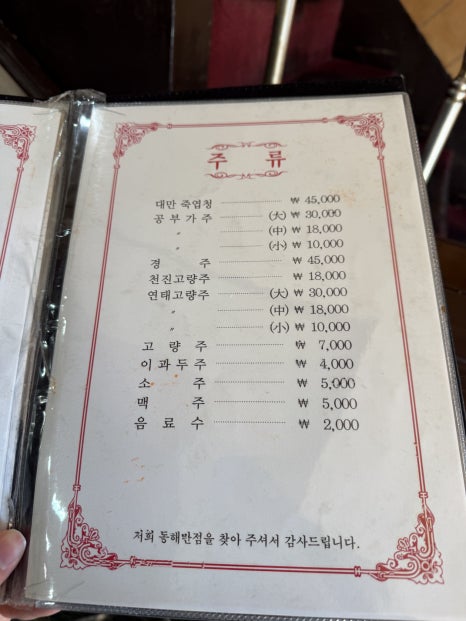 주 류
대만 죽엽청 ₩ 45,000
공부가주 (大) ₩ 30,000
〃 (中) ₩ 18,000
〃 (小) ₩ 10,000
경 주 ₩ 45,000
천진고량주 ₩ 18,000
연태고량주 (大) ₩ 30,000
〃 (中) ₩ 18,000
〃 (小) ₩ 10,000
고 량 주 ₩ 7,000
이 과 두 주 ₩ 4,000
소 주 ₩ 5,000
맥 주 ₩ 5,000
음 료 수 ₩ 2,000
저희 동해반점을 찾아 주셔서 감사드립니다.